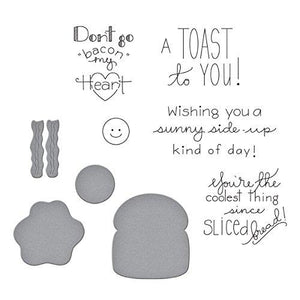 Don't go
"bacon"
my
Heart
A TOAST
to YOU!
Wishing you a
sunny side-up
kind of day!
You're the
coolest thing
since
SLICED bread!